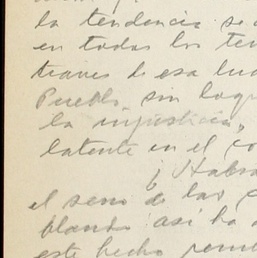 la tendencia se
en todos los
traves de esa luc
Pueblo, sin
la injusticia,
latente en el co
¡Habr
el seno de las c
blando así ha
este hecho